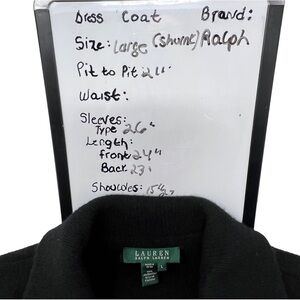 Dress Coat Brand:
Size: Large (Shrunk) Ralph
Pit to Pit 21"
Waist:
Sleeves:
Type 26"
Length:
front 24"
Back 23"
Shoulders:
LAUREN
RALPH LAUREN
L